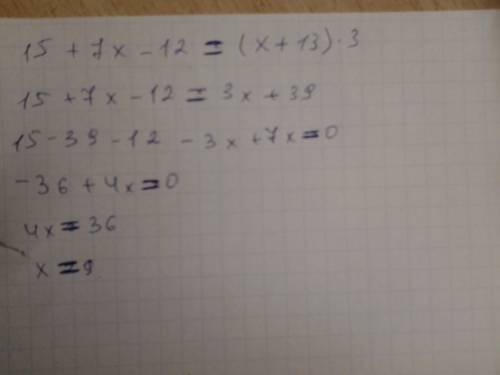 15 + 7x - 12 = (x + 13) · 3
15 + 7x - 12 = 3x + 39
15 - 39 - 12 - 3x + 7x = 0
- 36 + 4x = 0
4x = 36
x = 9